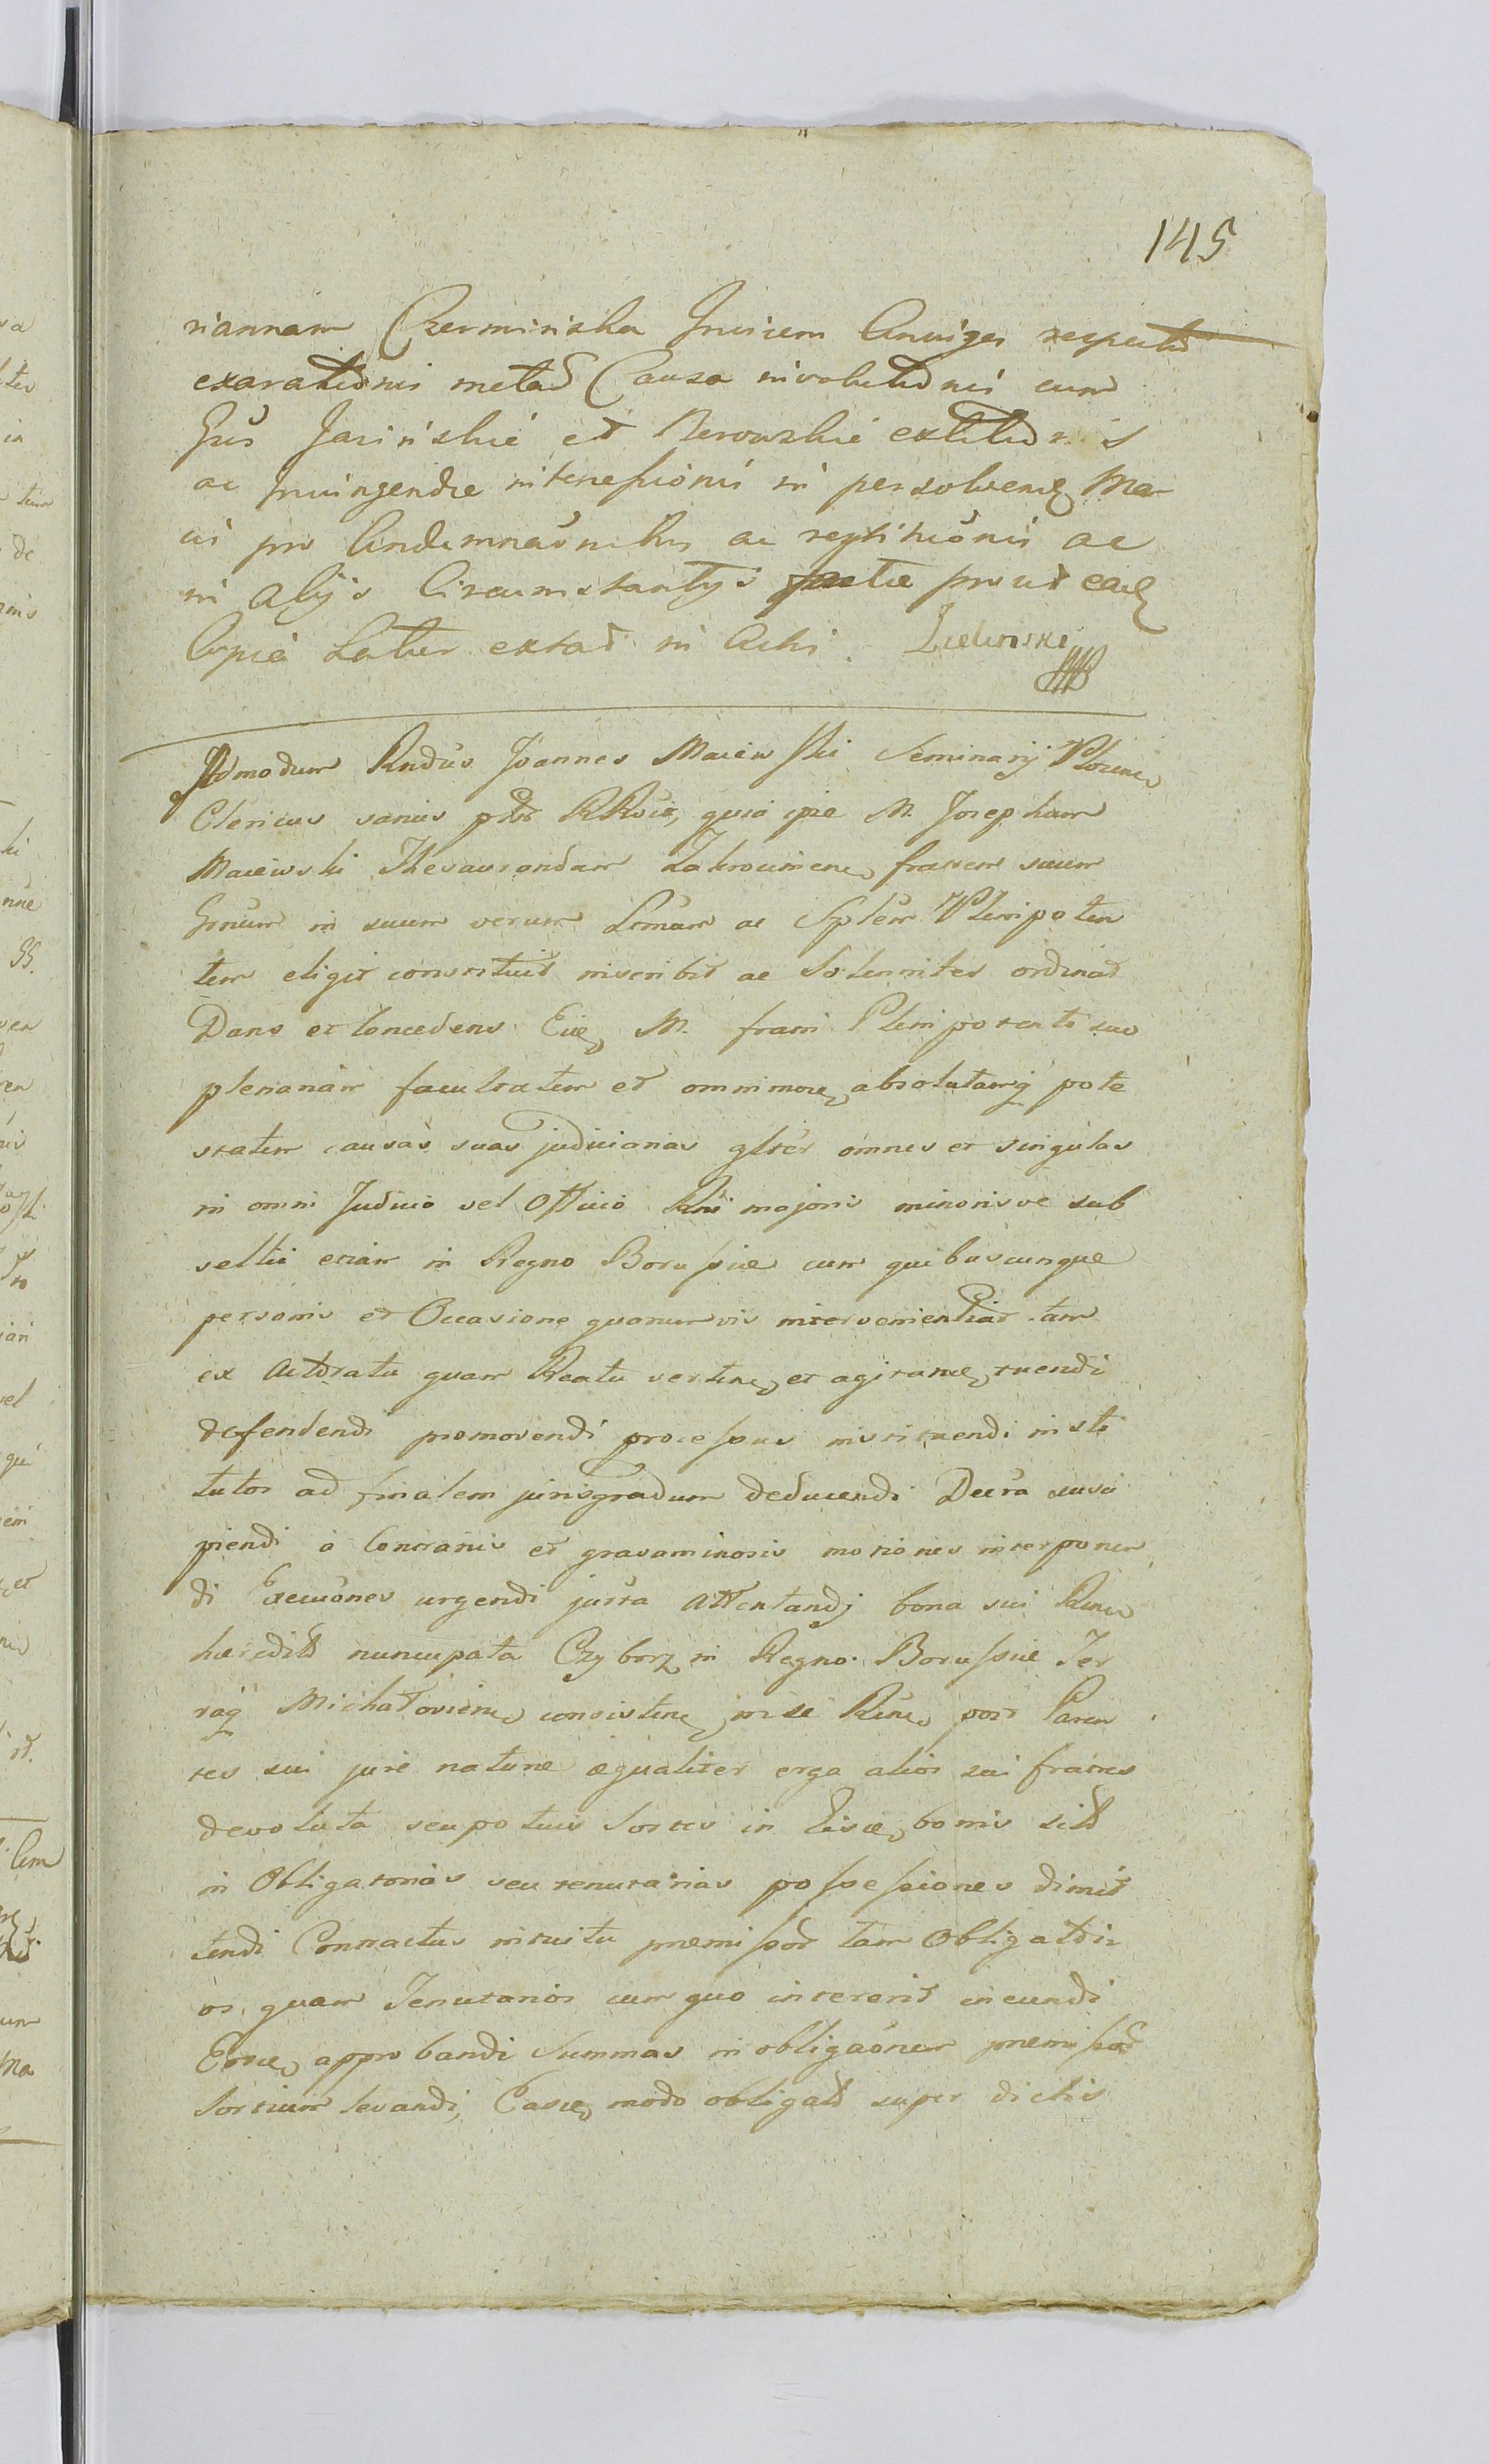 145
riannam Czerminska Invicem Coniuges respectu
exarationis metar Causa involutionis cum
Grs Jasinskie et Rerowskie
ac Invingendae intercessionis in persolven Ma
cis pro Condemnaonibus ac repetitionis ac
in alijs Circumstantijs factae prout ead
Copia Latius extat in Actis. Zielinski
Admodum Rndus Joannes Maiewski Seminarij Plocen
Clericus sanus pttr RRvit, quia ipse M. Josephum
Maiewski Thesaurandum Zakrocimen fratrem suum
Gnum in suum verum Lmum ac Splem Plenipoten
tem eligit constituit inscribit ac Solenniter ordinat
Dans et Concedens Eid M. fratri Plenipotenti suo
plenariam facultatem et omnimod absolutamq pote
statem causas suas judiciarias glter omnes et singulas
in omni Judicio vel Officio Rni majoris minorisve sub
sellii etiam in Regno Borussiae cum quibuscunque
personis et Occasione quarumvis intervenientiar tam
ex Actoratu quam Reatu verten et agitand, tuendi
defendendi promovendi processus instituendi insti
tutos ad finalem jurisgradum deducendi Decra susci
piendi a Contrariis et gravaminosis motiones interponen
di Execuones urgendi justa attentandj bona sui Rnn
haeredit nuncupata Czyborz in Regno Borussiae Ter
raq Michałovien consisten, in se Rnn post Paren
tes sui jure naturae aequaliter erga alios sui fratres
devoluta seu potius Sortes in Eisd, bonis sitt
in Obligatorias seu tenutarias possessiones dimit
tendi Contractus intuitu praemissor tam Obligatori
os quam Tenutarios cum quo intererit ineundi
Eosd approbandi Summas in obligaonem praemissar
Sortium levandi, Easd modo obligatt super dictis